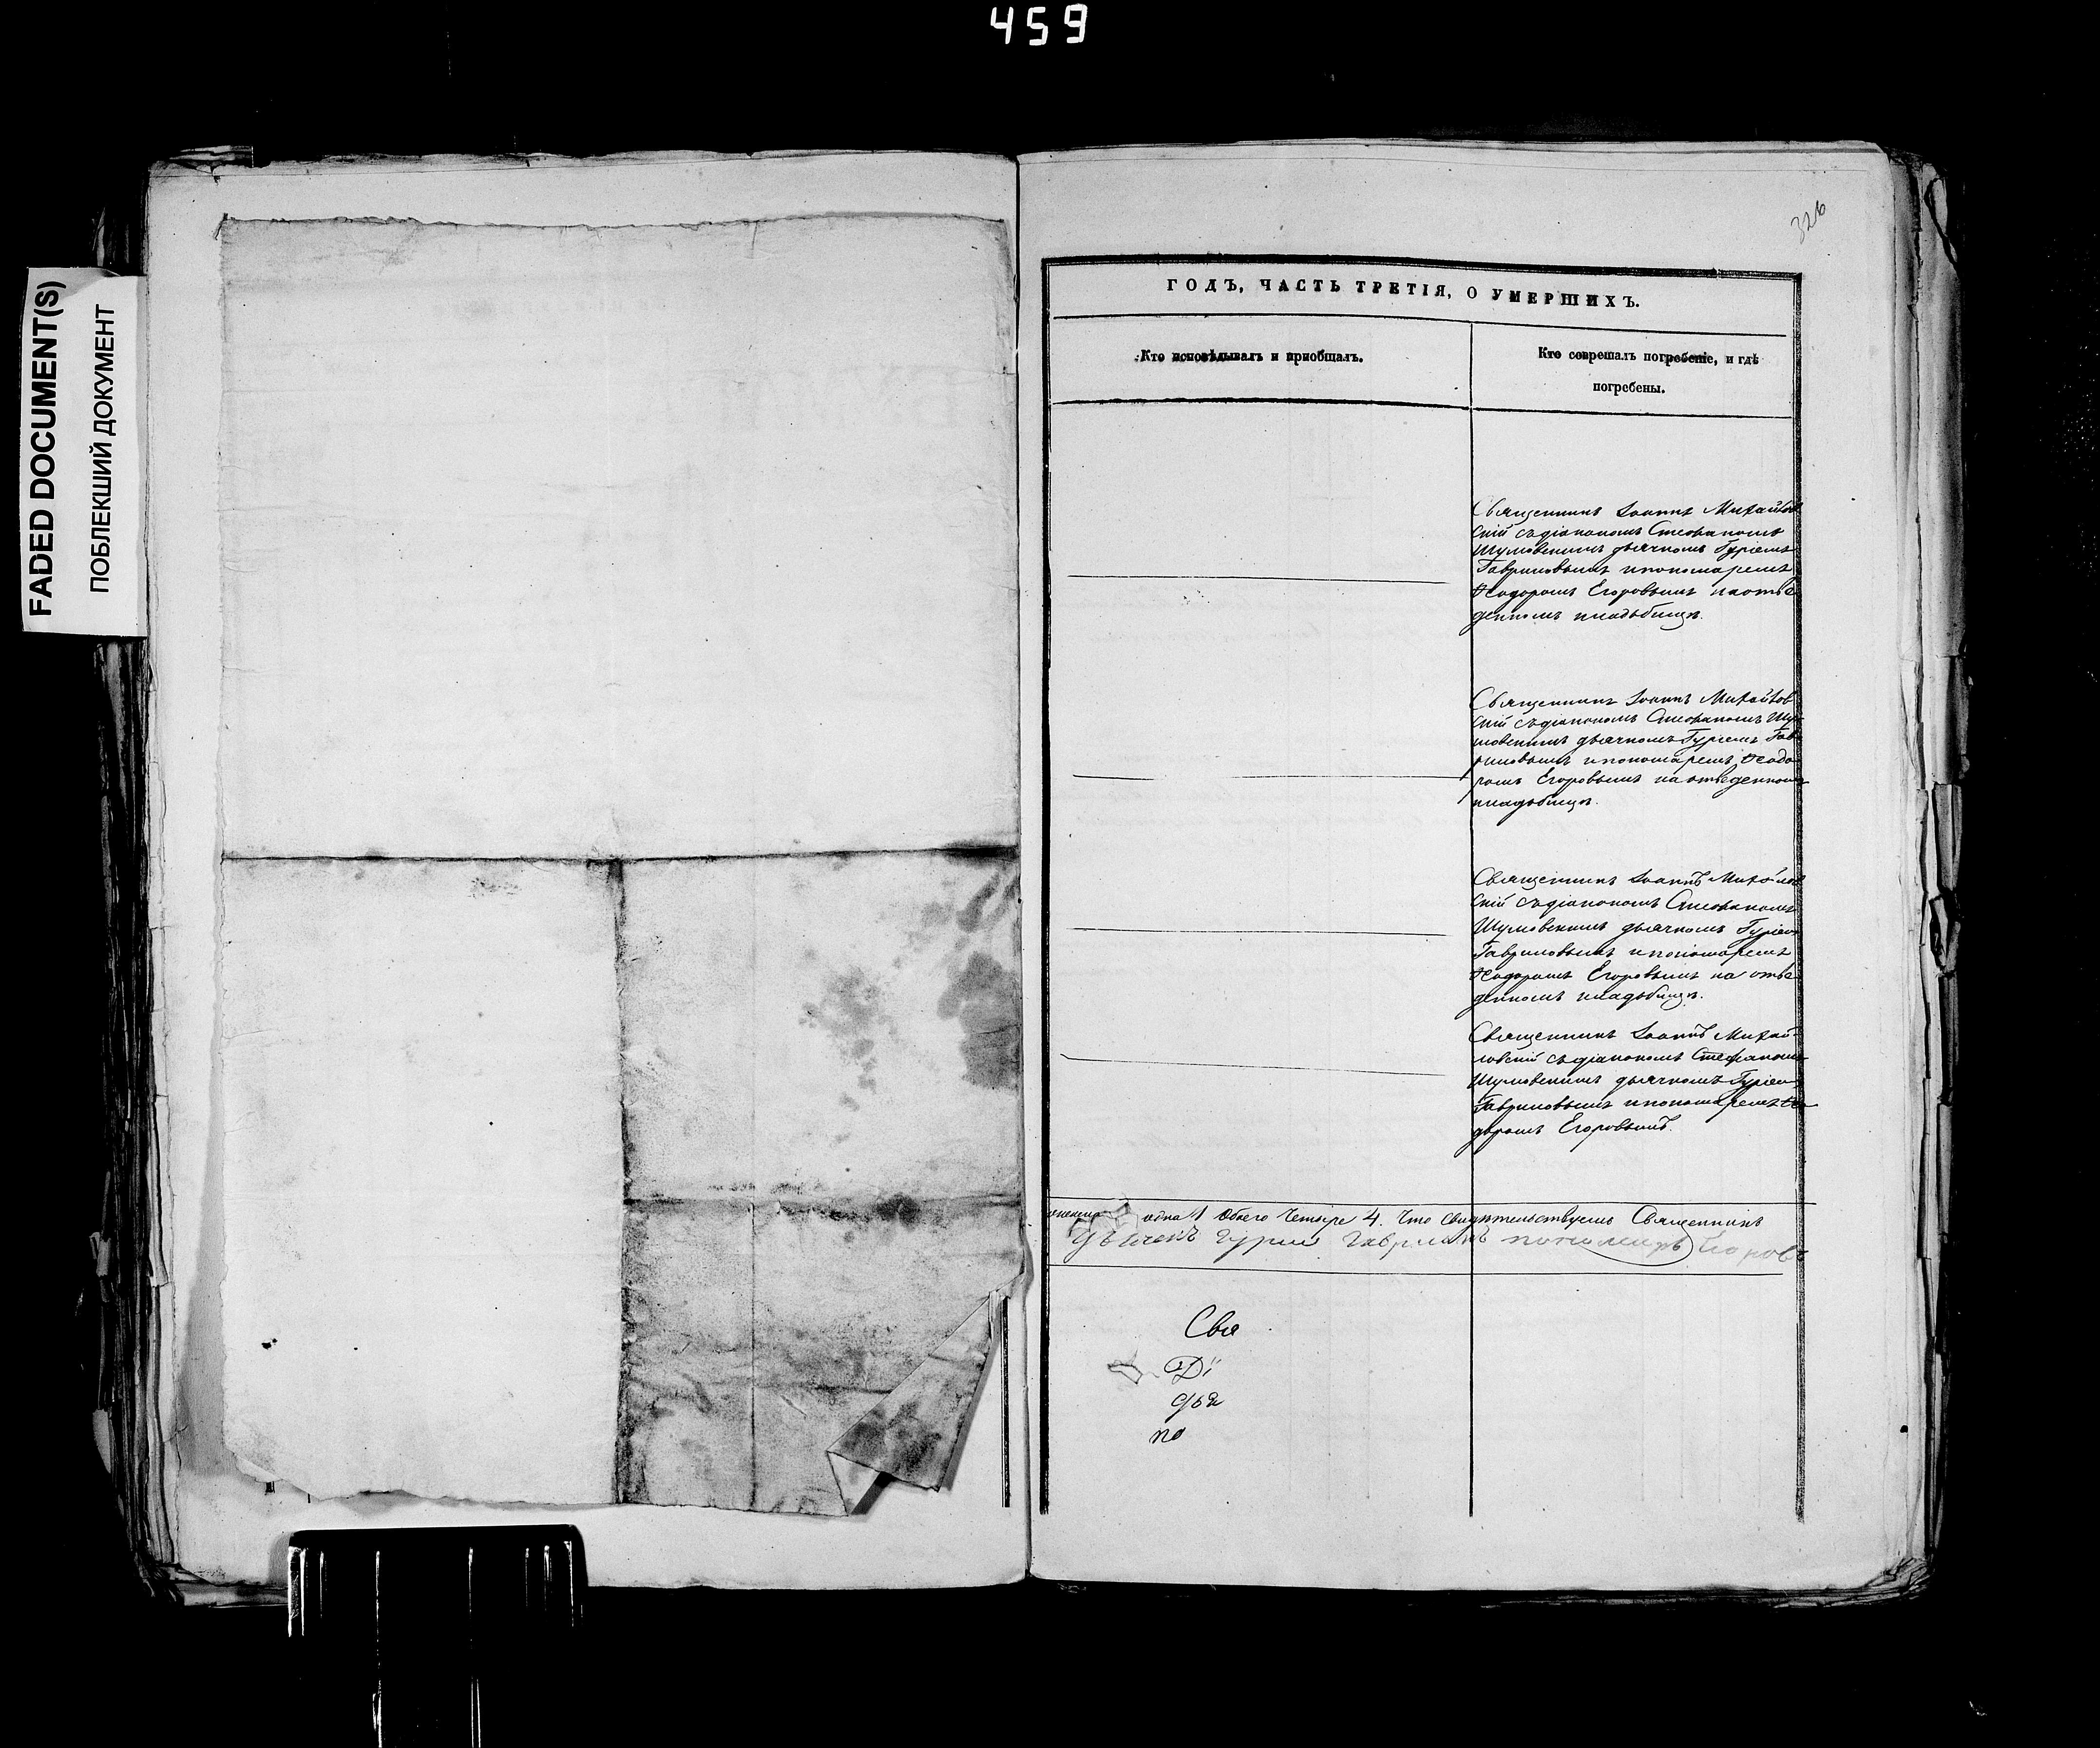 459
FADED DOCUMENT(S)
ПОБЛЕКШИЙ ДОКУМЕНТ
326
ГОДЪ, ЧАСТЬ ТРЕТІЯ, О УМЕРШИХЪ.
Кто исповѣдывалъ и пріобщалъ.
Кто соврешалъ погребеніе, и гдѣ
погребены.
Священникъ Іоаннъ Михайлов
скій съ діакономъ Стефаномъ
Шумовскимъ дьячкомъ Гуріемъ
Гавриловымъ и пономаремъ
Ѳеодоромъ Егоровымъ на отве
денномъ кладбищѣ.
Священникъ Іоаннъ Михайлов
скій съ діакономъ Стефаномъ Шу
мовскимъ дьячкомъ Гуріемъ Гав
риловымъ и пономаремъ Ѳеодо
ромъ Егоровымъ на отведенномъ
кладбищѣ.
Священникъ Іоаннъ Михайлов
скій съ діакономъ Стефаномъ
Шумовскимъ дьячкомъ Гуріем
Гавриловымъ и пономаремъ
Ѳеодоромъ Егоровымъ на отве
денномъ кладбищѣ.
Священникъ Іоаннъ Михай
ловскій съ діакономъ Стефаномъ
Шумовскимъ дьячкомъ Гуріем
Гавриловымъ и пономаремъ Ѳео
доромъ Егоровымъ.
одна 1 Обоего четыре 4. Что свидѣтельствуемъ Священникъ
Дьячекъ Гурій Гавриловъ пономарь Егоровъ
Свя
Ді
дья
по